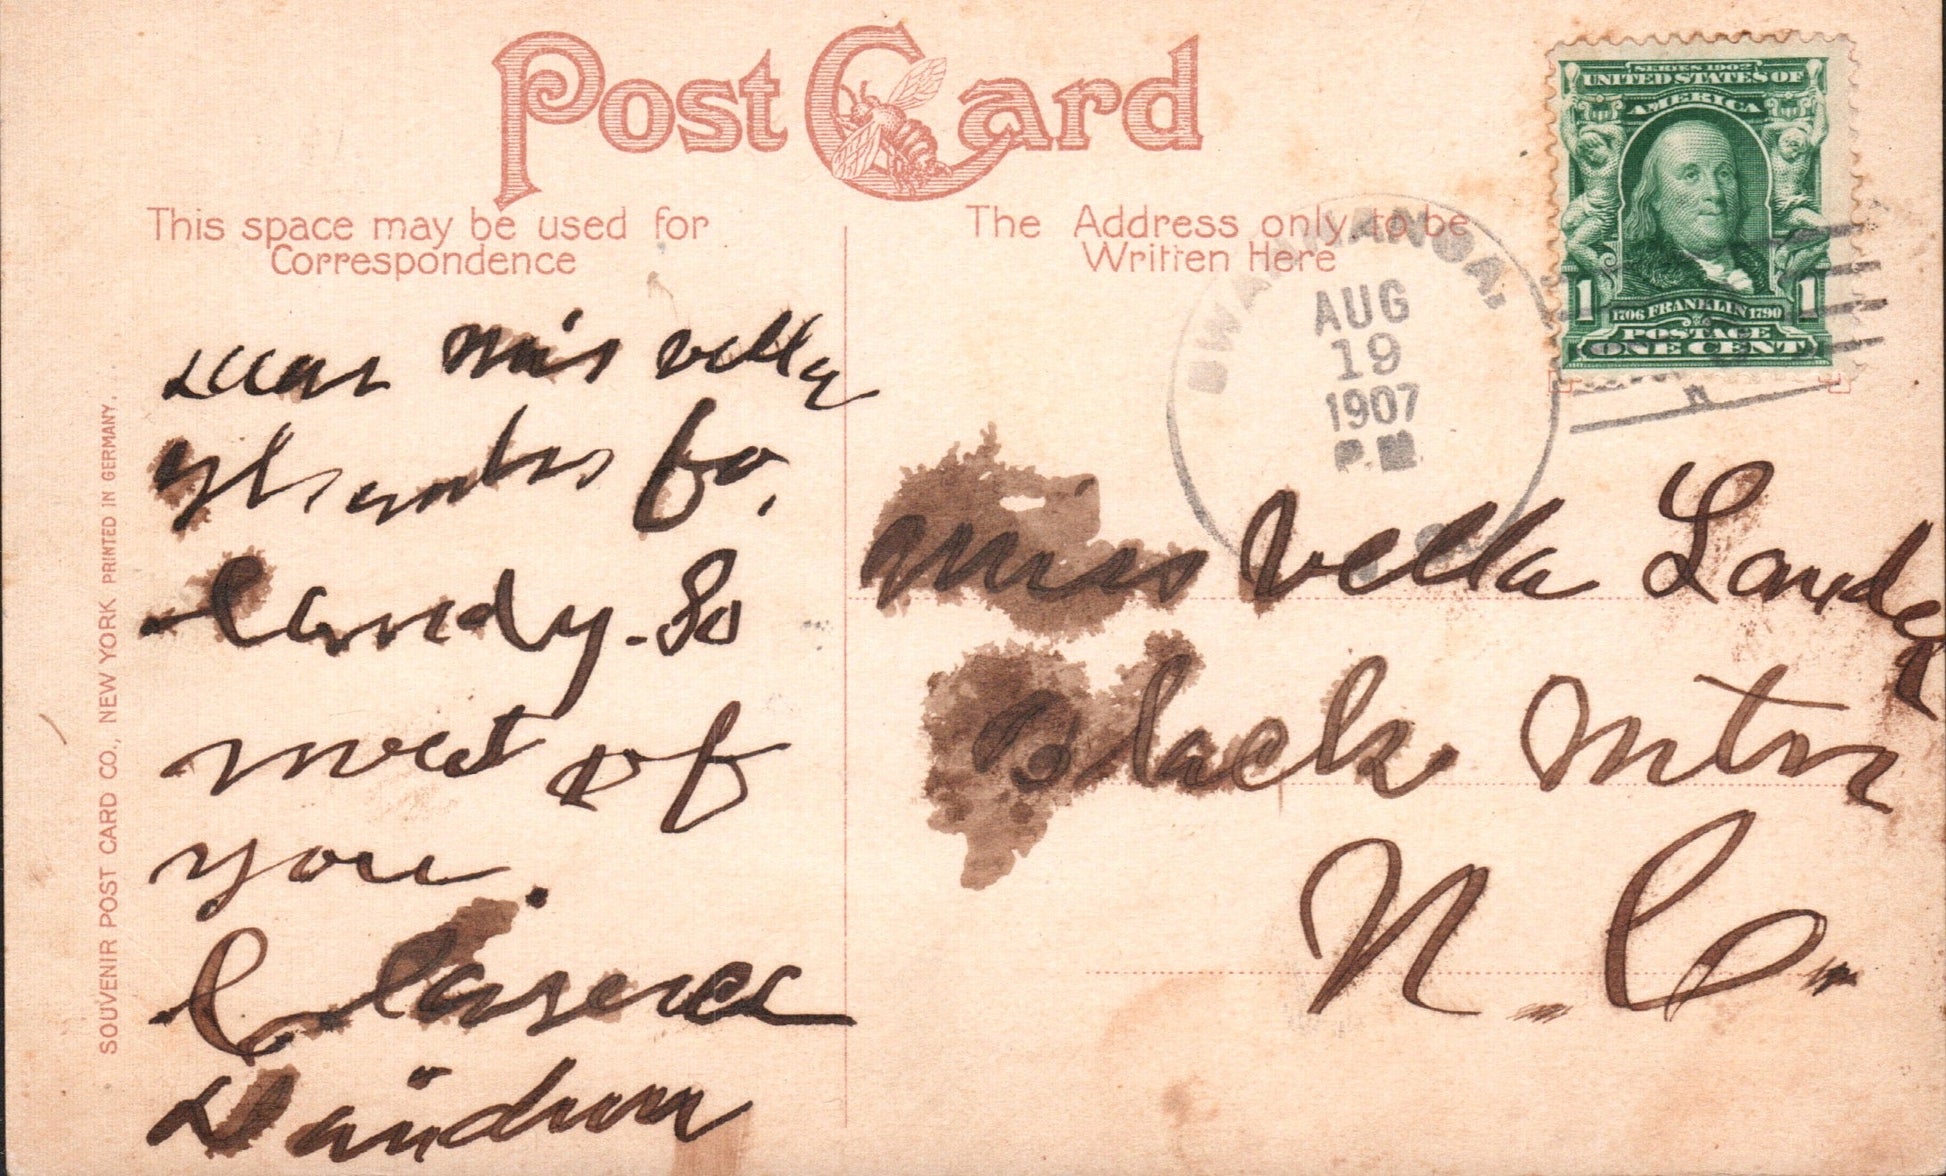 Post Card
This space may be used for
Correspondence
The Address only to be
Written Here
SERIES 1902
UNITED STATES OF
AMERICA
1 1
1706 FRANKLIN 1790
POSTAGE
ONE CENT
SWANNANOA,
AUG
19
1907
P.M.
Dear Mis Vella
Thanks fo,
Candy. So
swest of
you.
C
Davidson
Miss Vella
Black Mtn
N. C.
SOUVENIR POST CARD CO., NEW YORK PRINTED IN GERMANY.